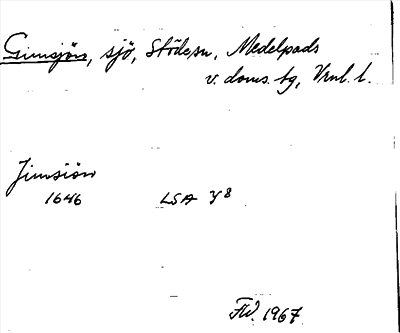 Gimsjön, sjö, Stöde sn, Medelpads
v. doms. tg, Vrnl. l.
Jimsiön
1646 LSA Y8
FW. 1967